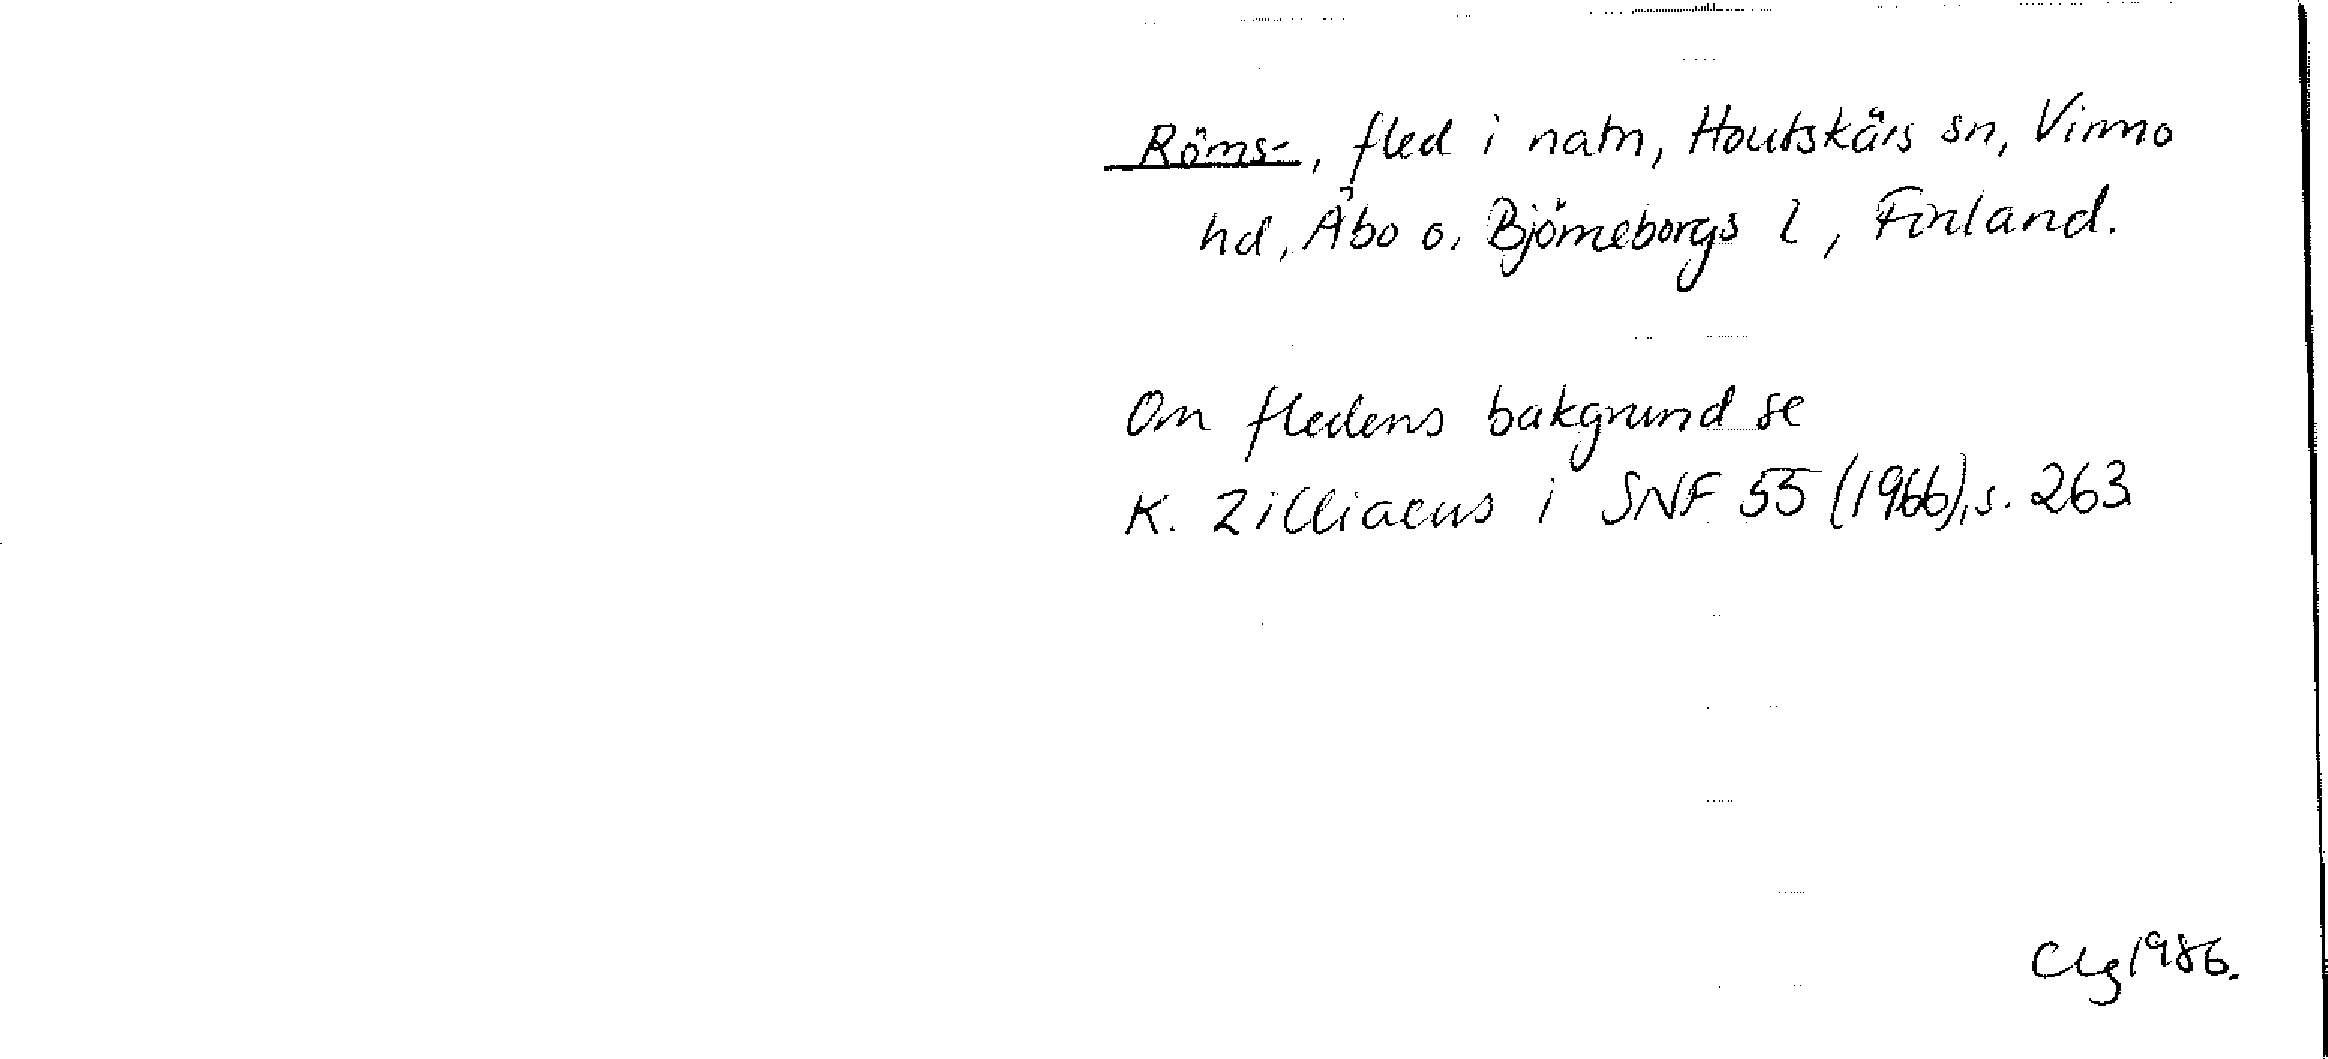 Röms-, fled i natn, Houtskärs sn, Virmo
hd, Åbo o. Björneborgs l, Finland.
Om fledens bakgrund se
K. Zilliacus i SNF 55 (1966), s. 263
CLg 1986.